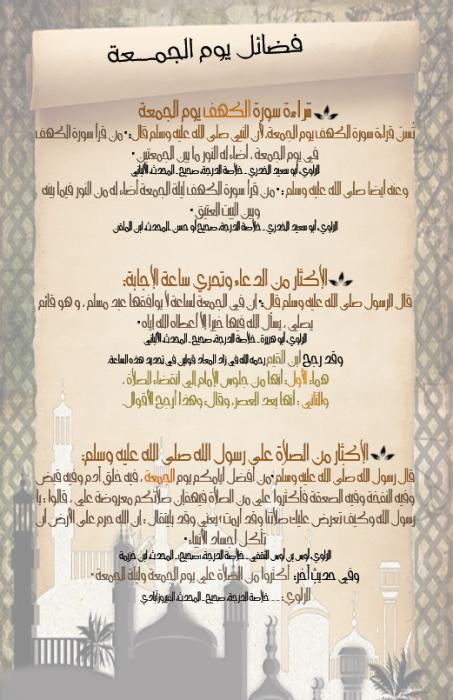 فضائل يوم الجمـــعة
قراءة سورة الكهف يوم الجمعة
تُسن قراءة سورة الكهف يوم الجمعة، لأن النبي صلى الله عليه وسلم قال: "من قرأ سورة الكهف
في يوم الجمعة ، أضاء له النور ما بين الجمعتين"
الراوي: أبو سعيد الخدري - خلاصة الدرجة: صحيح - المحدث: الألباني
وعنه أيضا صلى الله عليه وسلم : "من قرأ سورة الكهف ليلة الجمعة أضاء له من النور فيما بينه
وبين البيت العتيق"
الراوي: أبو سعيد الخدري - خلاصة الدرجة: صحيح أو حسن - المحدث: ابن الملقن
الأكثار من الدعاء وتحري ساعة الأجابة:
قال الرسول صلى الله عليه وسلم قال:" إن في الجمعة لساعة لا يوافقها عبد مسلم ، و هو قائم
يصلي ، يسأل الله فيها خيرا إلا أعطاه الله إياه"
الراوي: أبو هريرة - خلاصة الدرجة: صحيح - المحدث: الألباني
وقد رجح ابن القيم رحمه الله في زاد المعاد قولين في تحديد هذه الساعة.
هما: الأول: أنها من جلوس الأمام إلى انقضاء الصلاة ،
والثاني : أنها بعد العصر، وقال: وهذا أرجح الأقوال
الأكثار من الصلاة على رسول الله صلى الله عليه وسلم:
قال رسول الله صلى الله عليه وسلم "من أفضل أيامكم يوم الجمعة ، فيه خلق آدم وفيه قبض
وفيه النفخة وفيه الصعقة فأكثروا علي من الصلاة فيه فإن صلاتكم معروضة علي ، قالوا : يا
رسول الله وكيف تعرض عليك صلاتنا وقد أرمت ؟ يعني وقد بليت قال : إن الله حرم على الأرض أن
تأكل أجساد الأنبياء"
الراوي: أوس بن أوس الثقفي - خلاصة الدرجة: صحيح - المحدث: ابن خزيمة
وفي حديث آخر: أكثروا من الصلاة علي يوم الجمعة وليلة الجمعة"
الراوي: -- خلاصة الدرجة: صحيح - المحدث: الفيروزآبادي